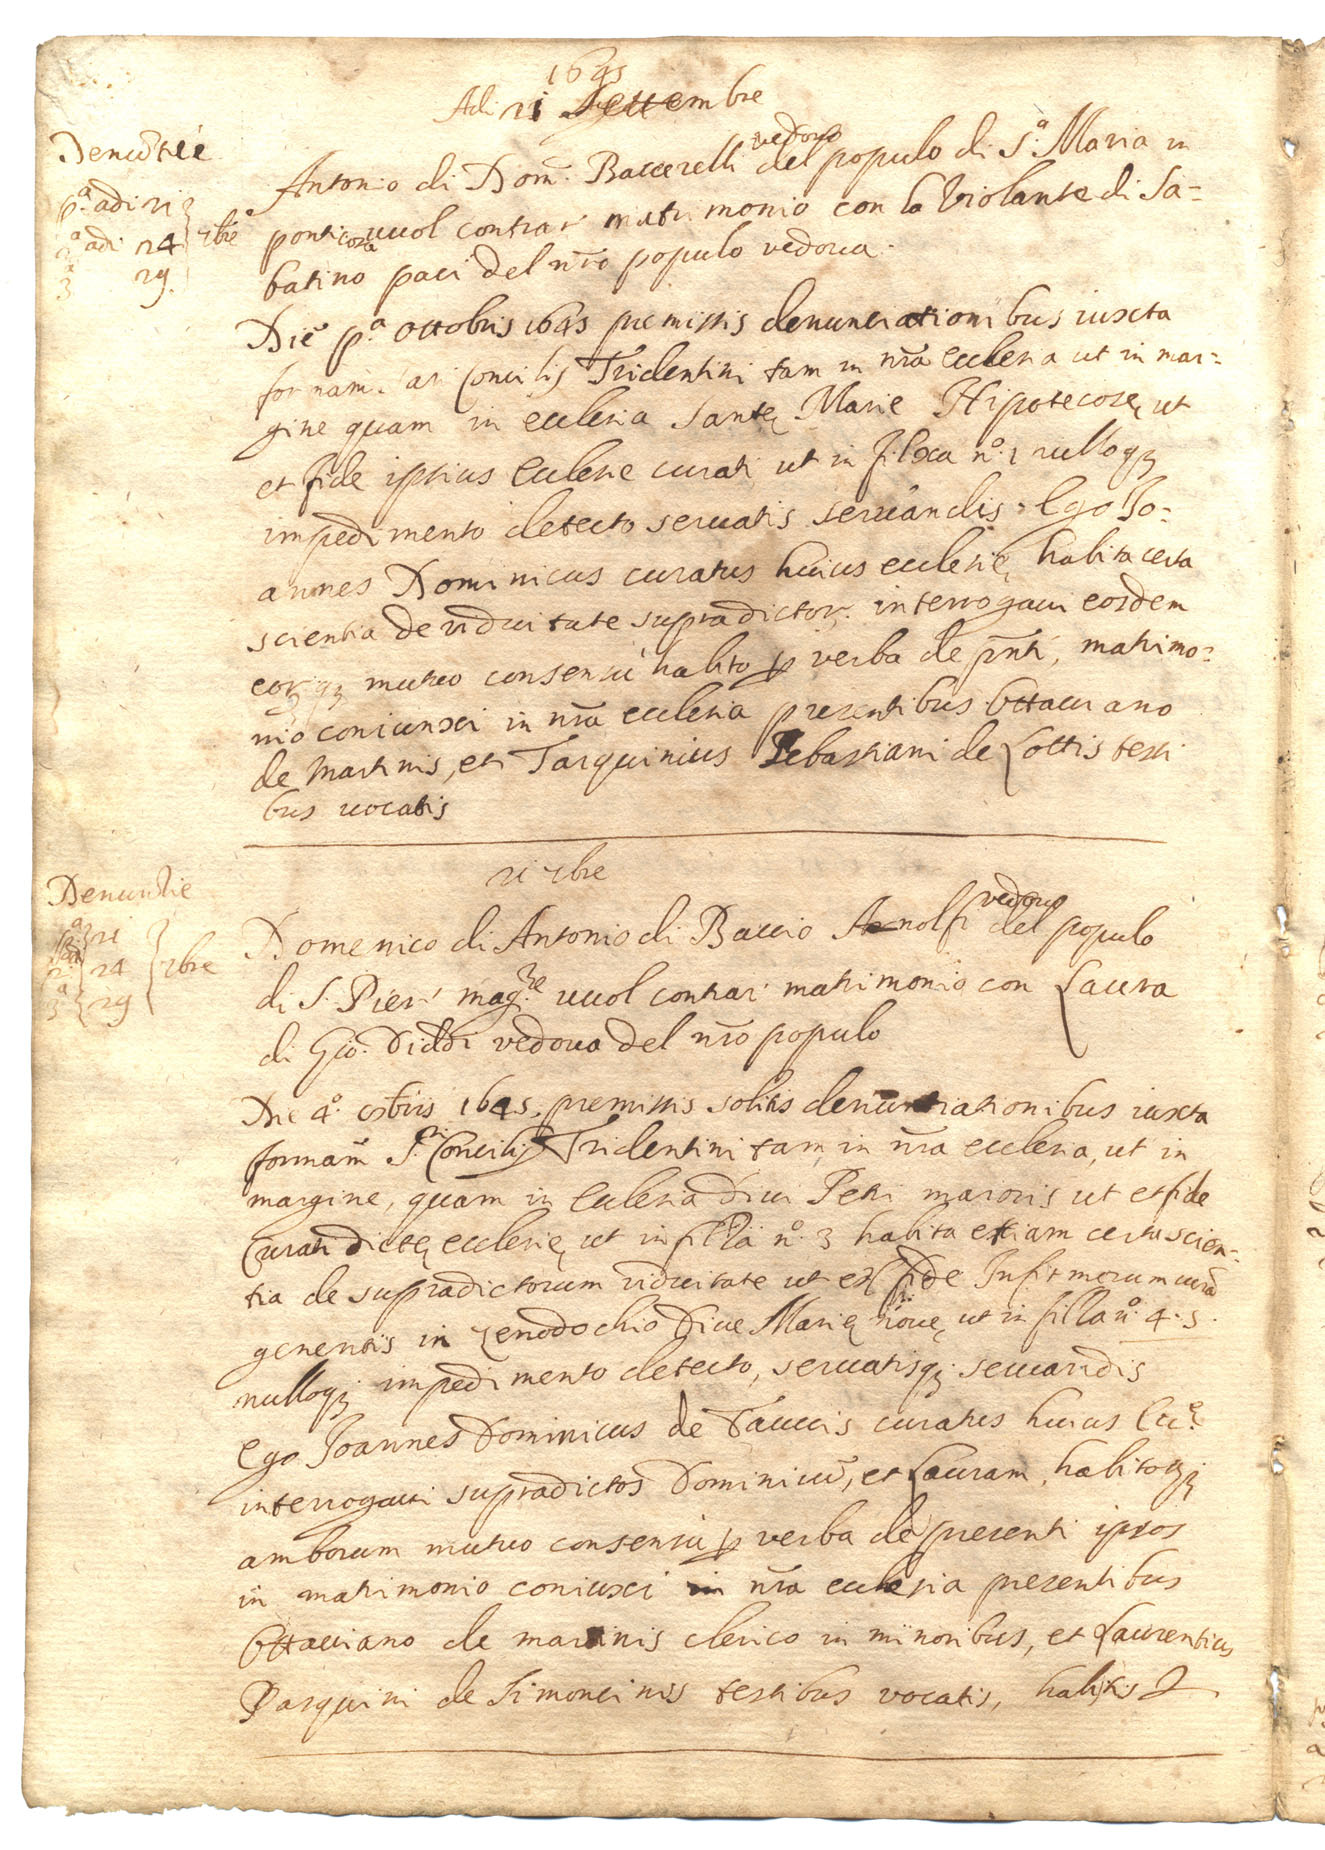 1645
Adi 21 Settembre
Denuntie
p.a adi 21
2.a adi 24 7bre
3.a 29
Antonio di Dom.o Baccerelli vedovo del populo di S.a Maria in
ponticora vuol contrar matrimonio con la Violante di Sa=
batino paci del nr̃o populo vedova.
Die p.a ottobris 1645 premissis denunciationibus iuxta
formam sac. Concilij Tridentini tam in nr̃a ecclesia ut in mar=
gine quam in ecclesia Santę Marie Hipotecorę, ut
et fide ipsius Eclesie curati ut in filza n.o 1 nulloqȝ
impedimento detecto servatis servandis, Ego Jo=
annes Dominicus curatus huius ecclesię, habita certa
scientia de viduitate supradictor. interrogavi eosdem
eorqȝ mutuo consensu habito ꝑ verba de pr̃nti, matrimo=
nio coniunxi in nr̃a ecclesia presentibus Ottaviano
de Martinis, et Tarquinius Sebastiani de Lottis testi
bus vocatis
21 7bre
Denuntie
p.a 21
2.a 24 7bre
3.a 29
Domenico di Antonio di Baccio Arnolfi vedovo del populo
di S. Pier mag.re vuol contrar matrimonio con Laura
di Gio. Diddi vedova del nr̃o populo
Die 4.o ottbris 1645. premissis solitis denuntiationibus iuxta
formam S.cri Concilij Tridentini tam in nr̃a ecclesia, ut in
margine, quam in Eclesia Divi Petri maioris ut et fide
Curati dictę ecclesię, ut in filza n.o 3 habita etiam certa scien=
tia de supradictorum viduitate ut ex fide Infirmorum curã
gerentis in Xenodochio Dive Marię novę, ut in filza n.o 4.5.
nulloqȝ impedimento detecto, servatisqȝ servandis
Ego Joannes Dominicus de Tauccis curatus huius Ecc.e
interrogavi supradictos Dominicũ, et Lauram, habitoqȝ
amborum mutuo consensu ꝑ verba de presenti ipsos
in matrimonio coniuxi in nr̃a ecclesia presentibus
Ottaviano de martinis clerico in minoribus, et Laurentius
Tarquini de Simoncinis testibus vocatis, habitis